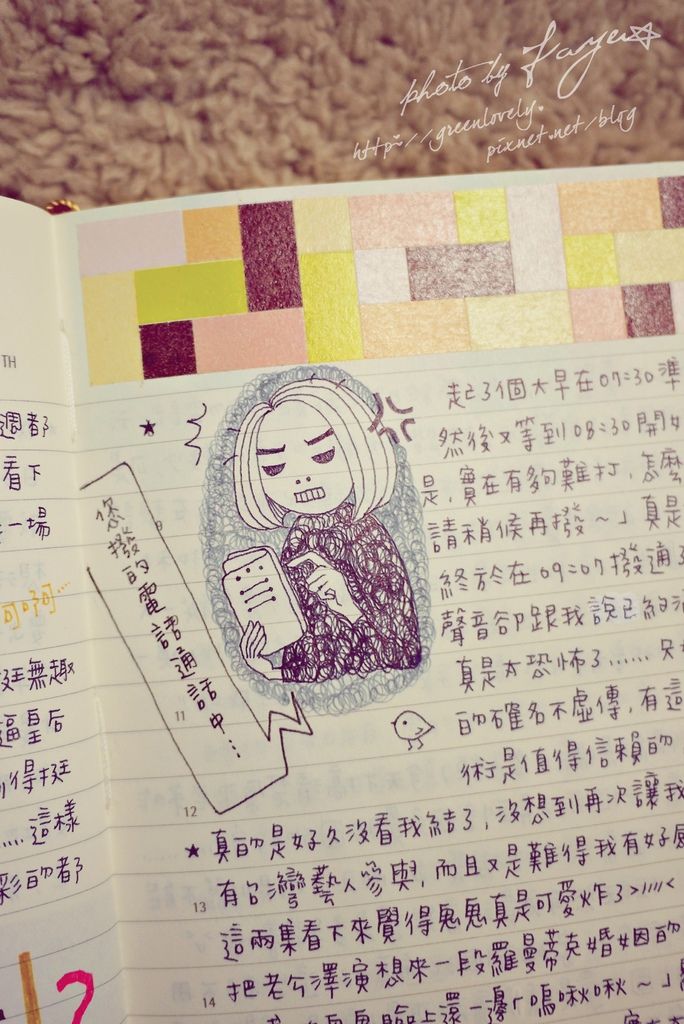 photo by Faye
http://greenlovely.
pixnet.net/blog
TH
週都
看下
一場
可啊...
廷無趣
福皇后
得挺
....這樣
彩的都
?
起了個大早在07:30準
然後又等到08:30開始
是,實在有夠難打,怎麼
請稍候再撥~」真是
終於在09:07撥通了
聲音卻跟我說已約滿
真是太恐怖了......只
的確名不虛傳,有這
術是值得信賴的
您撥的電話通話中...
9
11
12
★真的是好久沒看我結了,沒想到再次讓我
有台灣藝人參與,而且又是難得我有好感
13
這兩集看下來覺得鬼鬼真是可愛炸了>////<
14
把老公澤演想來一段羅曼蒂克婚姻的
臉上還一邊「嗚啾啾~」